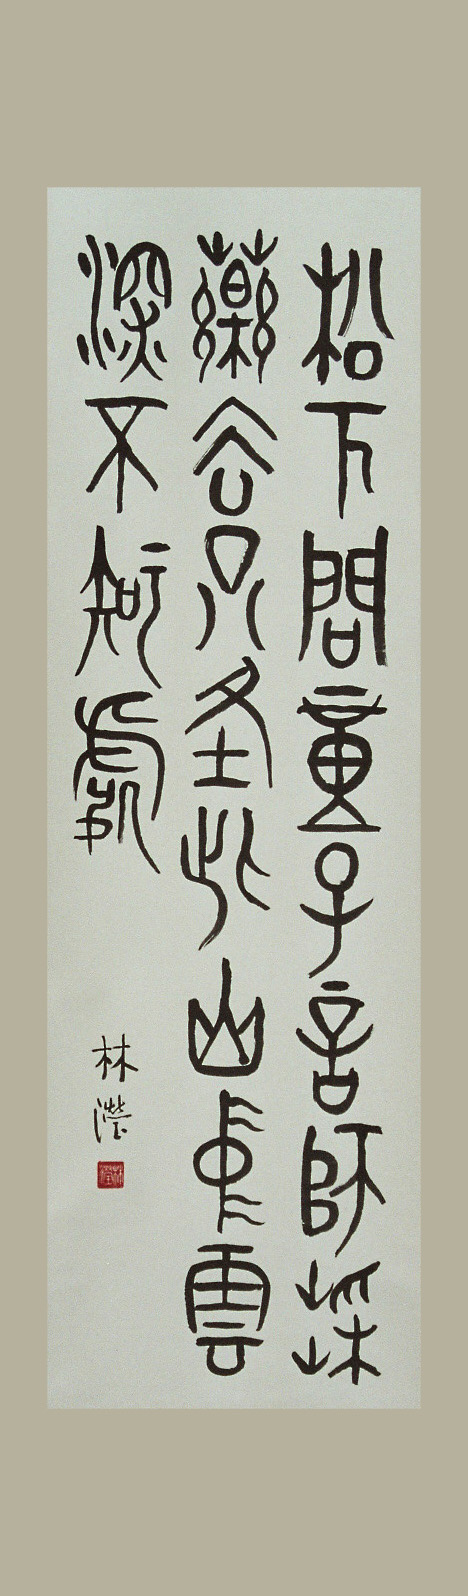 松下問童子言師採
藥去只在此山中雲
深不知處
林瀅